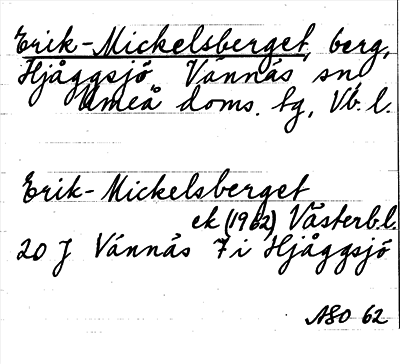 Erik-Mickelsberget, berg,
Hjåggsjö Vännäs sn,
Umeå doms. tg, Vb. l.
Erik-Mickelsberget
ek (1962) Västerb.l.
20 J Vännäs 7 i Hjåggsjö
ASO 62